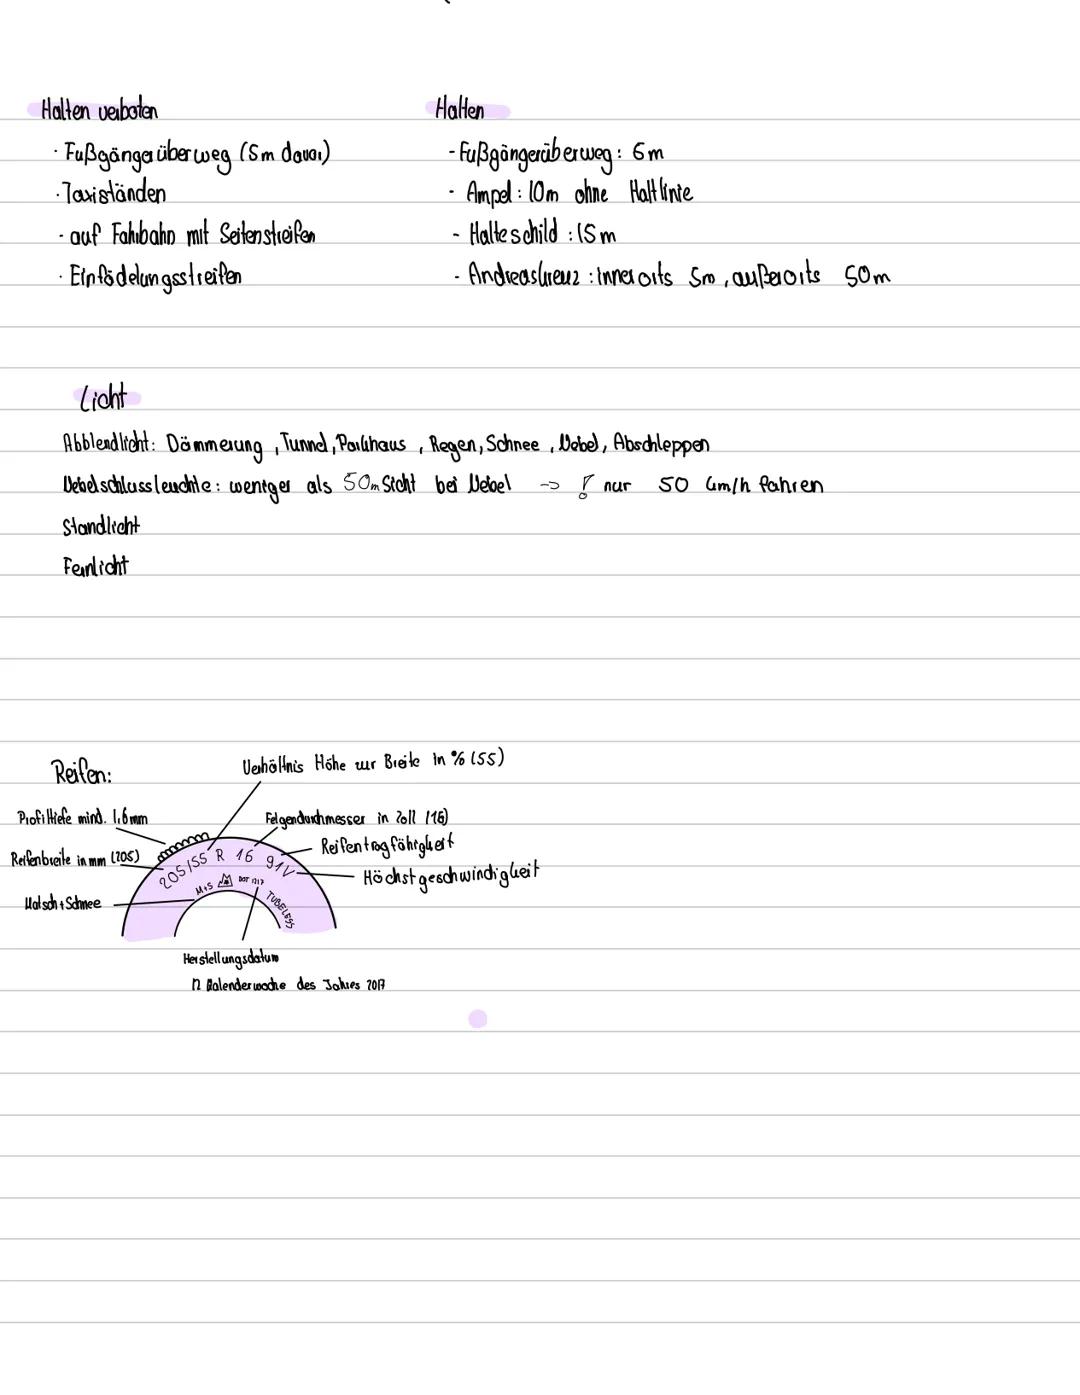 Halten verboten
· Fußgängerüberweg (5m davor)
· Taxiständen
· auf Fahrbahn mit Seitenstreifen
· Einfädelungsstreifen
Halten
- Fußgängerüberweg: 6m
- Ampel: 10m ohne Haltlinie
- Halteschild: 15m
- Andreaskreuz: innerorts 5m, außerorts 50m
Licht
Abblendlicht: Dämmerung, Tunnel, Parkhaus, Regen, Schnee, Nebel, Abschleppen
Nebelschlussleuchte: weniger als 50m Sicht bei Nebel -> ! nur 50 km/h fahren
Standlicht
Fernlicht
Reifen:
Verhältnis Höhe zur Breite in % (55)
Profiltiefe mind. 1,6mm
Felgendurchmesser in Zoll (16)
Reifenbreite in mm (205)
Reifentragfähigkeit
Höchstgeschwindigkeit
205/55 R 16 91V
M+S
DOT 1217
TUBELESS
Matsch+Schnee
Herstellungsdatum
12 Kalenderwoche des Jahres 2017